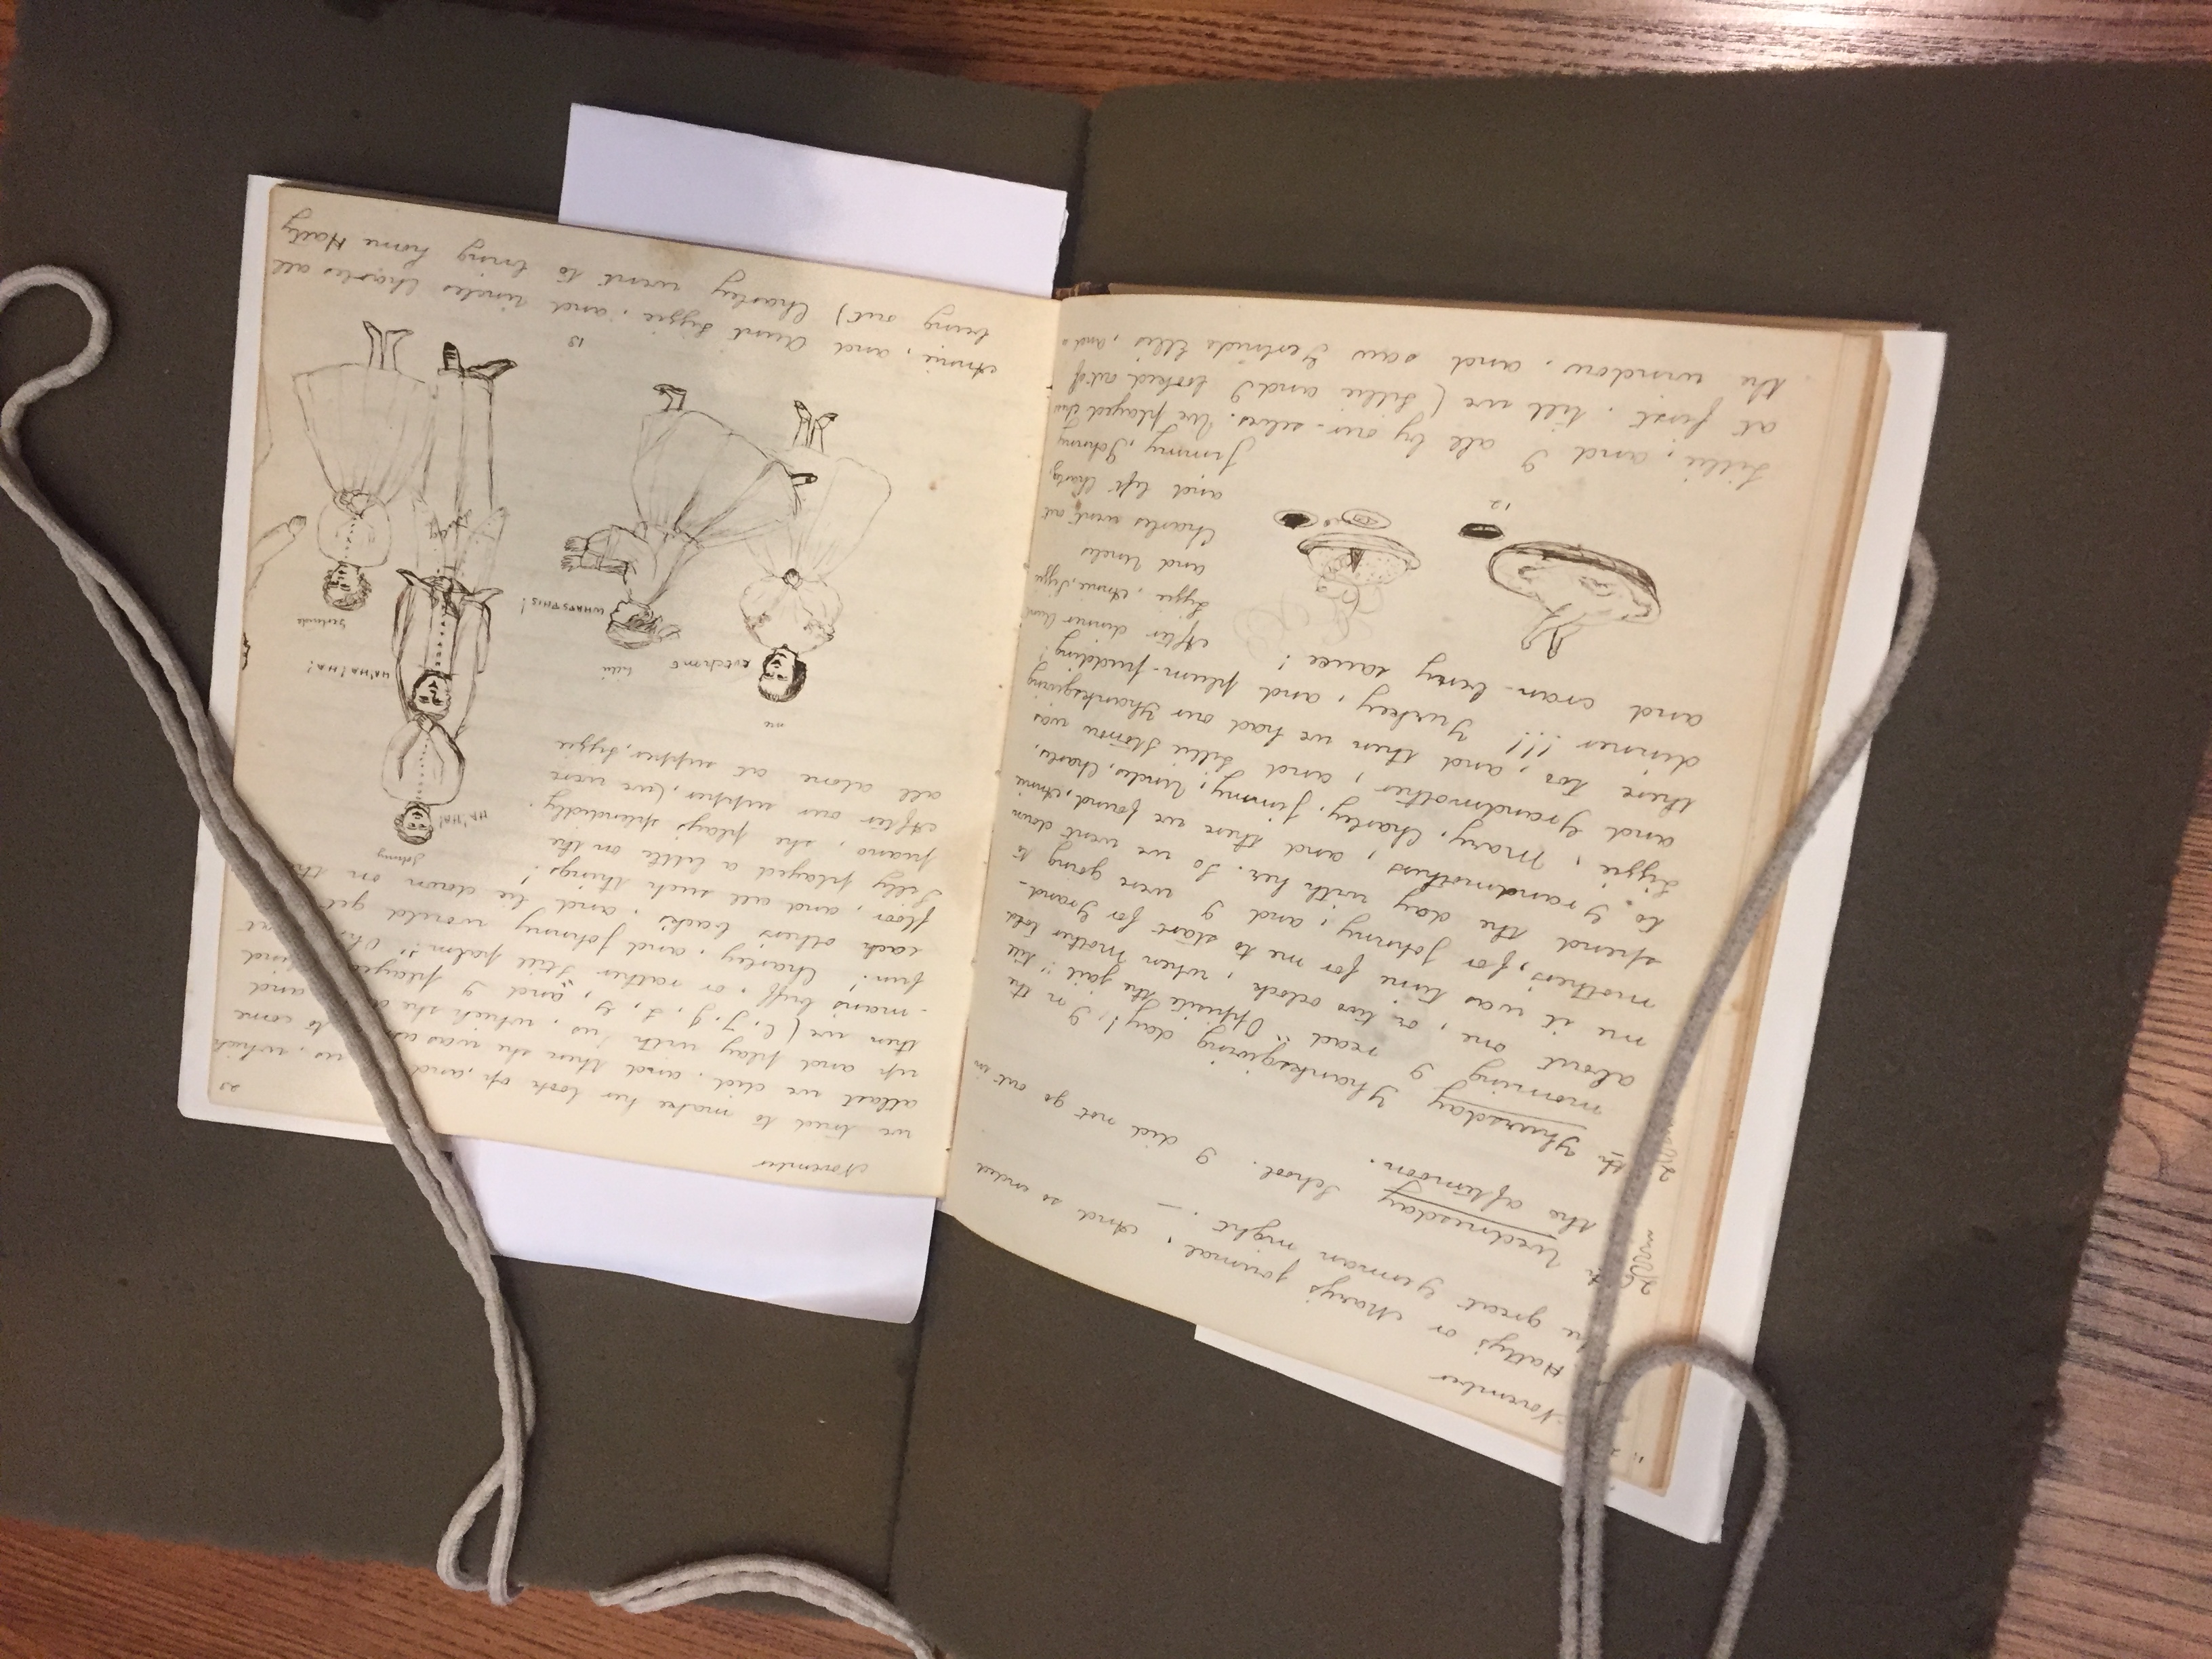 November
Hatty's or Mary's journal! And so ended
the great German night. —
26th Wednesday School. I did not go out in
the afternoon.
27th Thursday Thanksgiving day! In the
morning I read "Opposite the jail" till
about one, or two oclock, when Mother told
me it was time for me to start for Grand-
mother's, for Johnny, and I were going to
spend the day with her. So we went down
to Grandmothers, and there we found, Annie
Lizzie, Mary, Charley, Jimmy, Uncles, Charles,
and Grandmother, and Lillie Storrow was
there too, and then we had our Thanksgiving
dinner!!! Turkey, and plum-pudding,
and cran-berry sauce!
After dinner Aunt
Lizzie, Annie, Lizzie
and Uncles
Charles went out
and left Charley
Jimmy, Johnny
12
Lillie, and I all by our-selves. We played
at first, till we (Lillie and I looked out of
the window, and saw Gertrude Ellis, and
November
23
we tried to make her look up, and us, which
atlast we did, and then she was to come
up and play with us, which she and
then we (C, J, J, L, G, and I played
-man's buff, or rather "Still palm"
fun! Charley, and Johnny would get
each others back's, and lie down on the
floor, and all such things!
Lilly played a little on the
piano, she plays splendidly.
After our supper, (we were
all alone at supper, Lizzie
Johnny
HA'HA!
HA'HA!HA!
Gertrude
Lillie
WHAPSTHIS!
me
13
Annie, and Aunt Lizzie, and Uncles Charles all
being out) Charley went to bring home Hatty